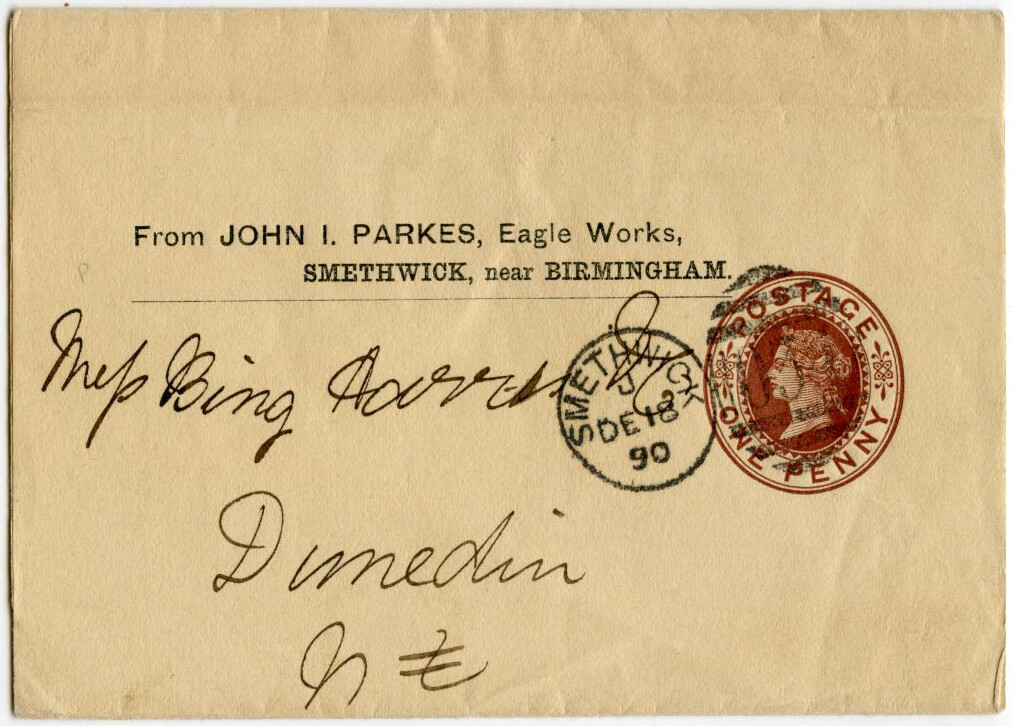 From JOHN I. PARKES, Eagle Works,
SMETHWICK, near BIRMINGHAM.
POSTAGE
ONE PENNY
SMETHWICK
J
DE 18
90
Messrs Bing Harris & Co
Dunedin
NZ